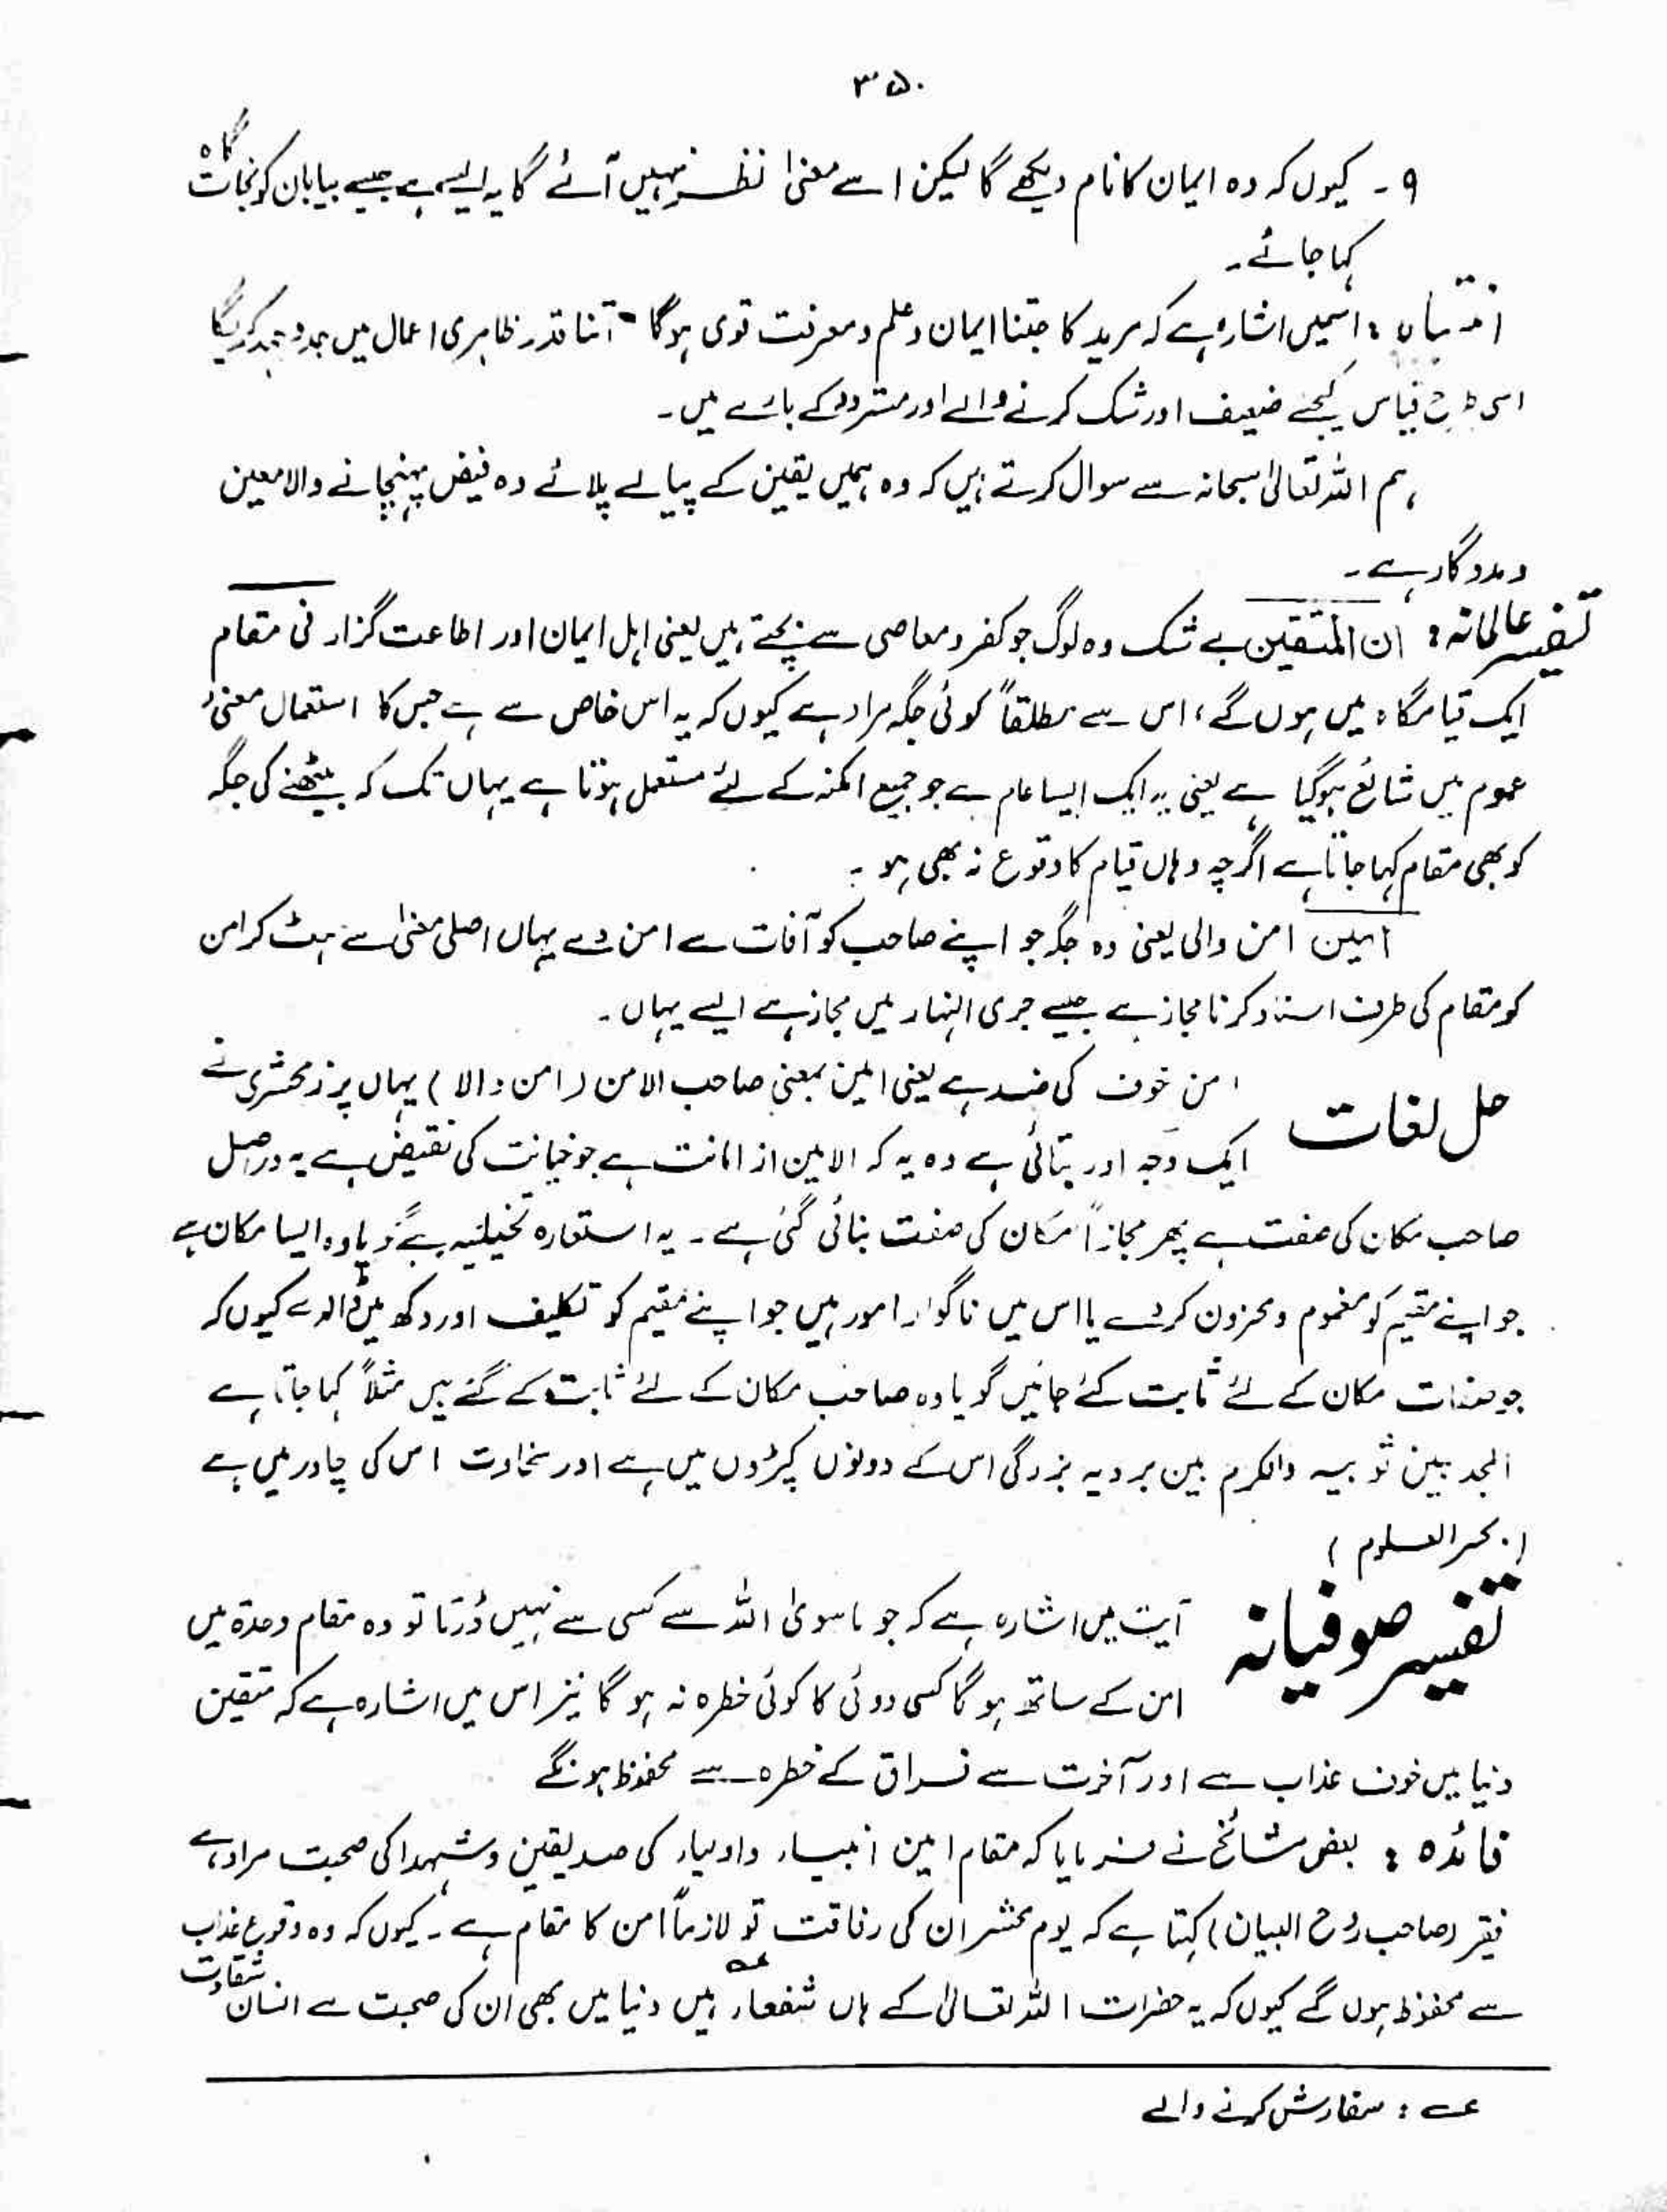 ۳۵۰
۹۔ کیوں کہ وہ ایمان کا نام دیکھے گا لیکن اسے معنیٰ نظر نہیں آئے گا یہ ایسے ہے جیسے بیابان کو نجات گاہ
کہا جائے۔
انتباہ : اسمیں اشارہ ہے کہ مرید کا جتنا ایمان و علم و معرفت قوی ہوگا اتنا قدر ظاہری اعمال میں جدوجہد کریگا
اسی طرح قیاس کیجئے ضعیف اور شک کرنے والے اور متردد کے بارے میں۔
ہم اللہ تعالیٰ سبحانہ سے سوال کرتے ہیں کہ وہ ہمیں یقین کے پیالے پلائے وہ فیض پہنچانے والا معین
و مددگار ہے۔
تفسیر عالمانہ : ان المتقین بے شک وہ لوگ جو کفر و معاصی سے بچتے ہیں یعنی اہل ایمان اور اطاعت گزار فی مقام
ایک قیامگاہ میں ہوں گے، اس سے مطلقاً کوئی جگہ مراد ہے کیوں کہ یہ اس خاص سے ہے جس کا استعمال معنیٰ
عموم میں شائع ہوگیا ہے یعنی یہ ایک ایسا عام ہے جو جمیع امکنہ کے لئے مستعمل ہوتا ہے یہاں تک کہ بیٹھنے کی جگہ
کو بھی مقام کہا جاتا ہے اگرچہ وہاں قیام کا وقوع نہ بھی ہو۔
امین امن والی یعنی وہ جگہ جو اپنے صاحب کو آفات سے امن دے یہاں اصلی معنیٰ سے ہٹ کر امن
کو مقام کی طرف اسناد کرنا مجاز ہے جیسے جری النہار میں مجاز ہے ایسے یہاں۔
حل لغات امن خوف کی ضد ہے یعنی امین بمعنی صاحب الامن (امن والا) یہاں پر زمخشری نے
ایک وجہ اور بتائی ہے وہ یہ کہ الامین از امانت ہے جو خیانت کی نقیض ہے یہ دراصل
صاحب مکان کی صفت ہے پھر مجازاً مکان کی صفت بنائی گئی ہے۔ یہ استعارہ تخیلیہ ہے گویا وہ ایسا مکان ہے
جو اپنے مقیم کو مغموم و محزون کر دے یا اس میں ناگوار امور ہیں جو اپنے مقیم کو تکلیف اور دکھ میں ڈالدے کیوں کہ
جو صفات مکان کے لئے ثابت کئے جائیں گویا وہ صاحب مکان کے لئے ثابت کے گئے ہیں مثلاً کہا جاتا ہے
المجد بین ثوبیہ والکرم بین بردیہ بزرگی اس کے دونوں کپڑوں میں ہے اور سخاوت اس کی چادر میں ہے
(بحر العلوم)
تفسیر صوفیانہ آیت میں اشارہ ہے کہ جو ماسویٰ اللہ سے کسی سے نہیں ڈرتا تو وہ مقام وحدۃ میں
امن کے ساتھ ہو گا کسی دوئی کا کوئی خطرہ نہ ہو گا نیز اس میں اشارہ ہے کہ متقین
دنیا میں خوف عذاب سے اور آخرت سے فراق کے خطرہ سے محفوظ ہونگے
فائدہ : بعض مشائخ نے فرمایا کہ مقام امین انبیاء و اولیاء کی صدیقین و شہدا کی صحبت مراد ہے
فقیر (صاحب روح البیان) کہتا ہے کہ یوم محشر ان کی رفاقت تو لازماً امن کا مقام ہے۔ کیوں کہ وہ وقوع عذاب
سے محفوظ ہوں گے کیوں کہ یہ حضرات اللہ تعالیٰ کے ہاں شفعاء عہ ہیں دنیا میں بھی ان کی صحبت سے انسان شقاوت
عہ : سفارش کرنے والے